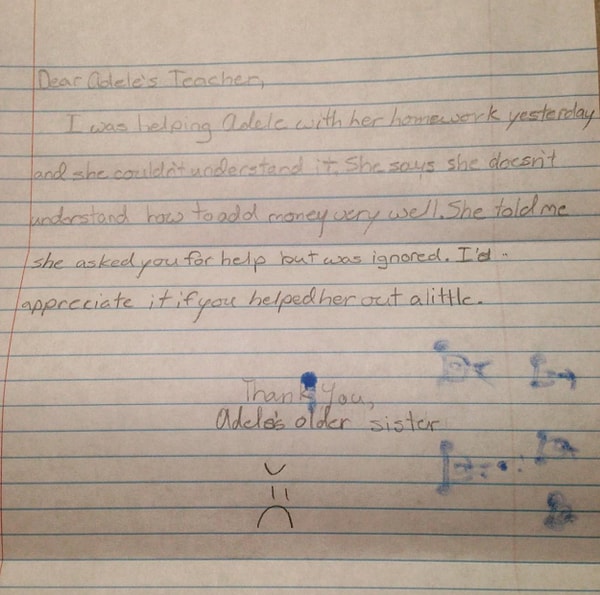 Dear Adele's Teacher,
I was helping Adele with her homework yesterday
and she couldn't understand it. She says she doesn't
understand how to add money very well. She told me
she asked you for help but was ignored. I'd
appreciate it if you helped her out a little.
Thank You,
Adele's older sister